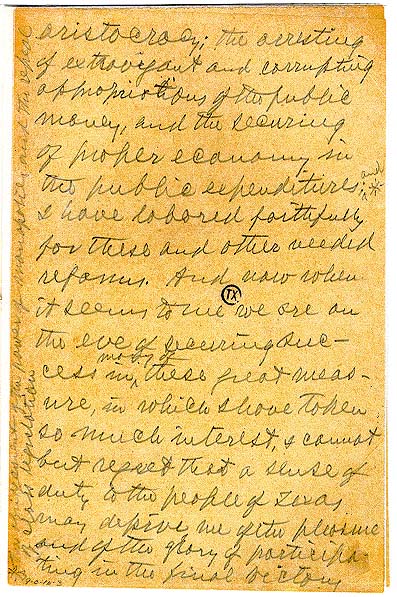 aristocracy; the arresting
of extravagant and corrupting
appropriations of the public
money, and the securing
of proper economy in
the public expenditures; and *
I have labored faithfully
for these and other needed
reforms. And now when
it seems to me we are on
the eve of securing suc-
cess in most of these great meas-
ure, in which I have taken
so much interest, I cannot
but regret that a sense of
duty to the people of Texas
may deprive me of the pleasure
and of the glory of participa-
ting in the final victory
TX
power of monopolies and the repeal
of class legislation